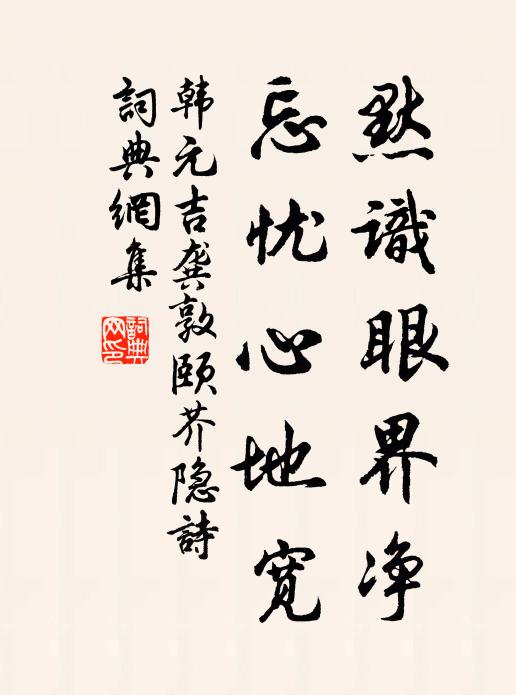 默識眼界净
忘忧心地寬
韩元吉龚敦頤芥隐詩
詞典網集
詞典网印